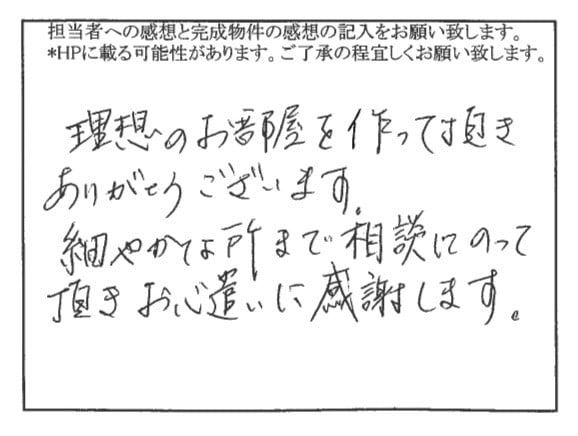 担当者への感想と完成物件の感想の記入をお願い致します。
*HPに載る可能性があります。ご了承の程宜しくお願い致します。
理想のお部屋を作って頂き
ありがとうございます。
細やかな所まで相談にのって
頂きお心遣いに感謝します。